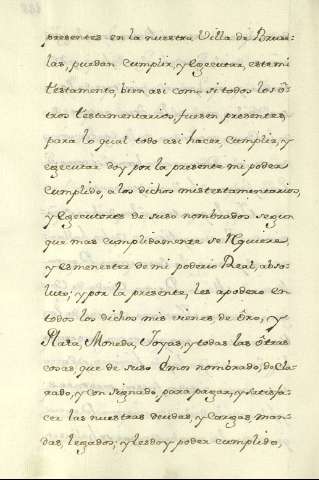 presentes en la nuestra Villa de Bruse-
las, puedan cumplir, y Egecutar, este mi
testamento, bien asi como si todos los ô-
tros testamentarios, fuesen presentes,
para lo qual todo asi hacer, cumplir, y
egecutar doy por la presente mi poder
cumplido, a los dichos mis testamentarios,
y Egecutores de suso nombrados segun
que mas cumplidamente se Rquiere,
y es menester de mi poderio Real, abso-
luto; y por la presente, les apodero en
todos los dichos mis vienes, de Oro, y
Plata, Moneda, Joyas, y todas las ôtras
cosas, que de suso êmos nombrado, decla-
rado, y consignado, para pagar, y satisfa-
cer las nuestras deudas, y cargas, man-
das, legados; y les doy poder cumplido,